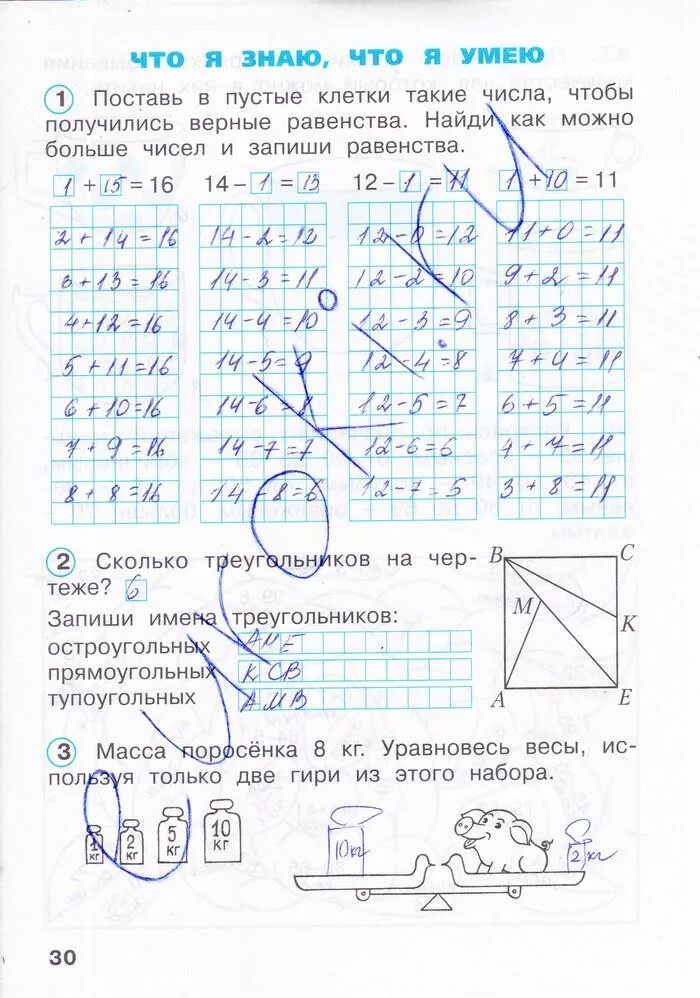 ЧТО Я ЗНАЮ, ЧТО Я УМЕЮ
1 Поставь в пустые клетки такие числа, чтобы
получились верные равенства. Найди как можно
больше чисел и запиши равенства.
1 + 15 = 16 14 – 1 = 13 12 – 1 = 11 1 + 10 = 11
2 + 14 = 16 14 - 2 = 12 12 - 0 = 12 11 + 0 = 11
3 + 13 = 16 14 - 3 = 11 12 - 2 = 10 9 + 2 = 11
4 + 12 = 16 14 - 4 = 10 12 - 3 = 9 8 + 3 = 11
5 + 11 = 16 14 - 5 = 9 12 - 4 = 8 7 + 4 = 11
6 + 10 = 16 14 - 6 = 8 12 - 5 = 7 6 + 5 = 11
7 + 9 = 16 14 - 7 = 7 12 - 6 = 6 4 + 7 = 11
8 + 8 = 16 14 - 8 = 6 12 - 7 = 5 3 + 8 = 11
2 Сколько треугольников на чер-
теже? 6
Запиши имена треугольников:
остроугольных АМЕ
прямоугольных КСВ
тупоугольных АМВ
B C
M K
A E
3 Масса поросёнка 8 кг. Уравновесь весы, ис-
пользуя только две гири из этого набора.
1 кг 2 кг 5 кг 10 кг
10кг 2 кг
30